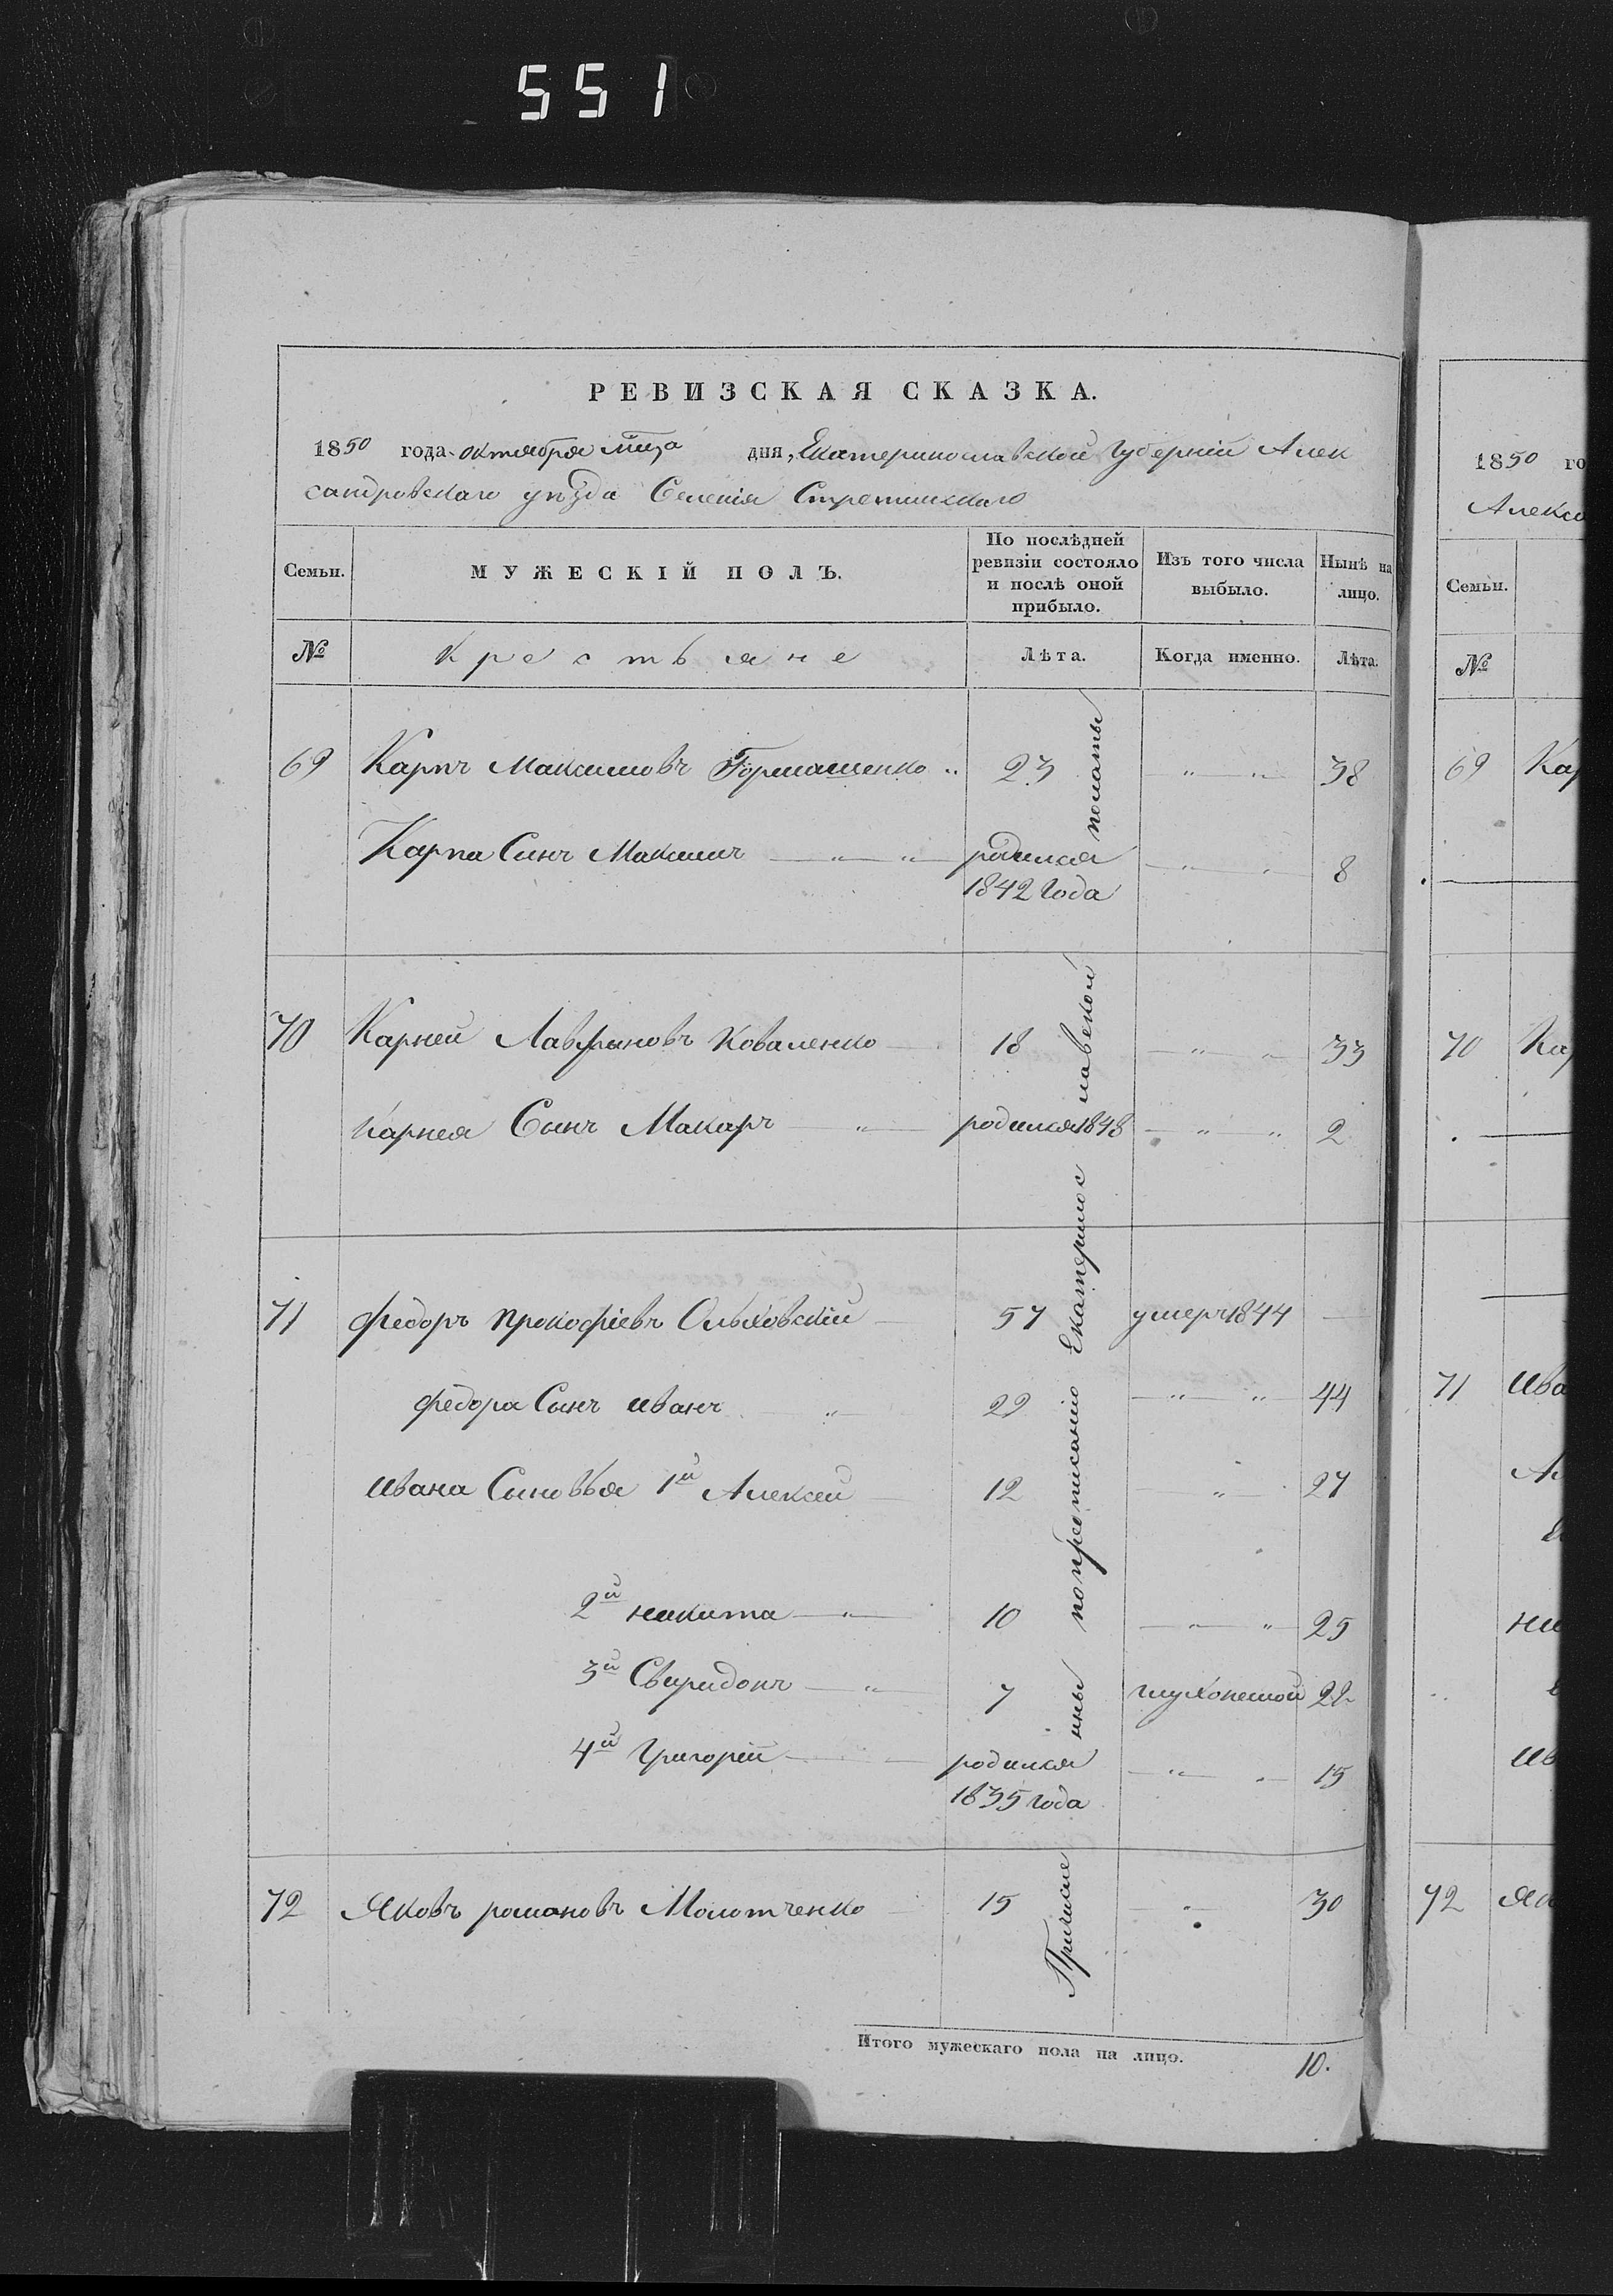 551
РЕВИЗСКАЯ СКАЗКА.
1850 года октября мѣца дня, Екатеринославской Губерніи Алек
сандровскаго уѣзда Селенія Стретинскаго
Семьи. МУЖЕСКІЙ ПОЛЪ. По послѣдней ревизіи состояло и послѣ оной прибыло. Изъ того числа выбыло. Нынѣ на лицо.
№ Крестьяне Лѣта. Когда именно. Лѣта.
69 Карпъ Максимовъ Гормашенко 23 " " 38
Карпа Сынъ Максимъ " " родился 1842 года " " 8
70 Карней Лавриновъ Коваленко 18 " " 33
Карнея Сынъ Макаръ " родился 1848 " " 2
71 Федоръ Прокофіевъ Ольховскій 57 умеръ 1844 —
Федора Сынъ Иванъ " 29 " " 44
Ивана Сыновья 1й Алексей 12 " 27
2й Никита " 10 " " 25
3й Свиридонъ " 7 глухонемой 22
4й Григорій родился 1835 года " " 15
72 Яковъ романовъ Молотченко 15 " 30
Причисленны по предписанію Екатеринославской полаты
Итого мужескаго пола на лицо. 10.
1850 го
Алекса
Семьи.
№
69 Кар
70 Ка
71 Ива
Ал
ни
ив
72 Як